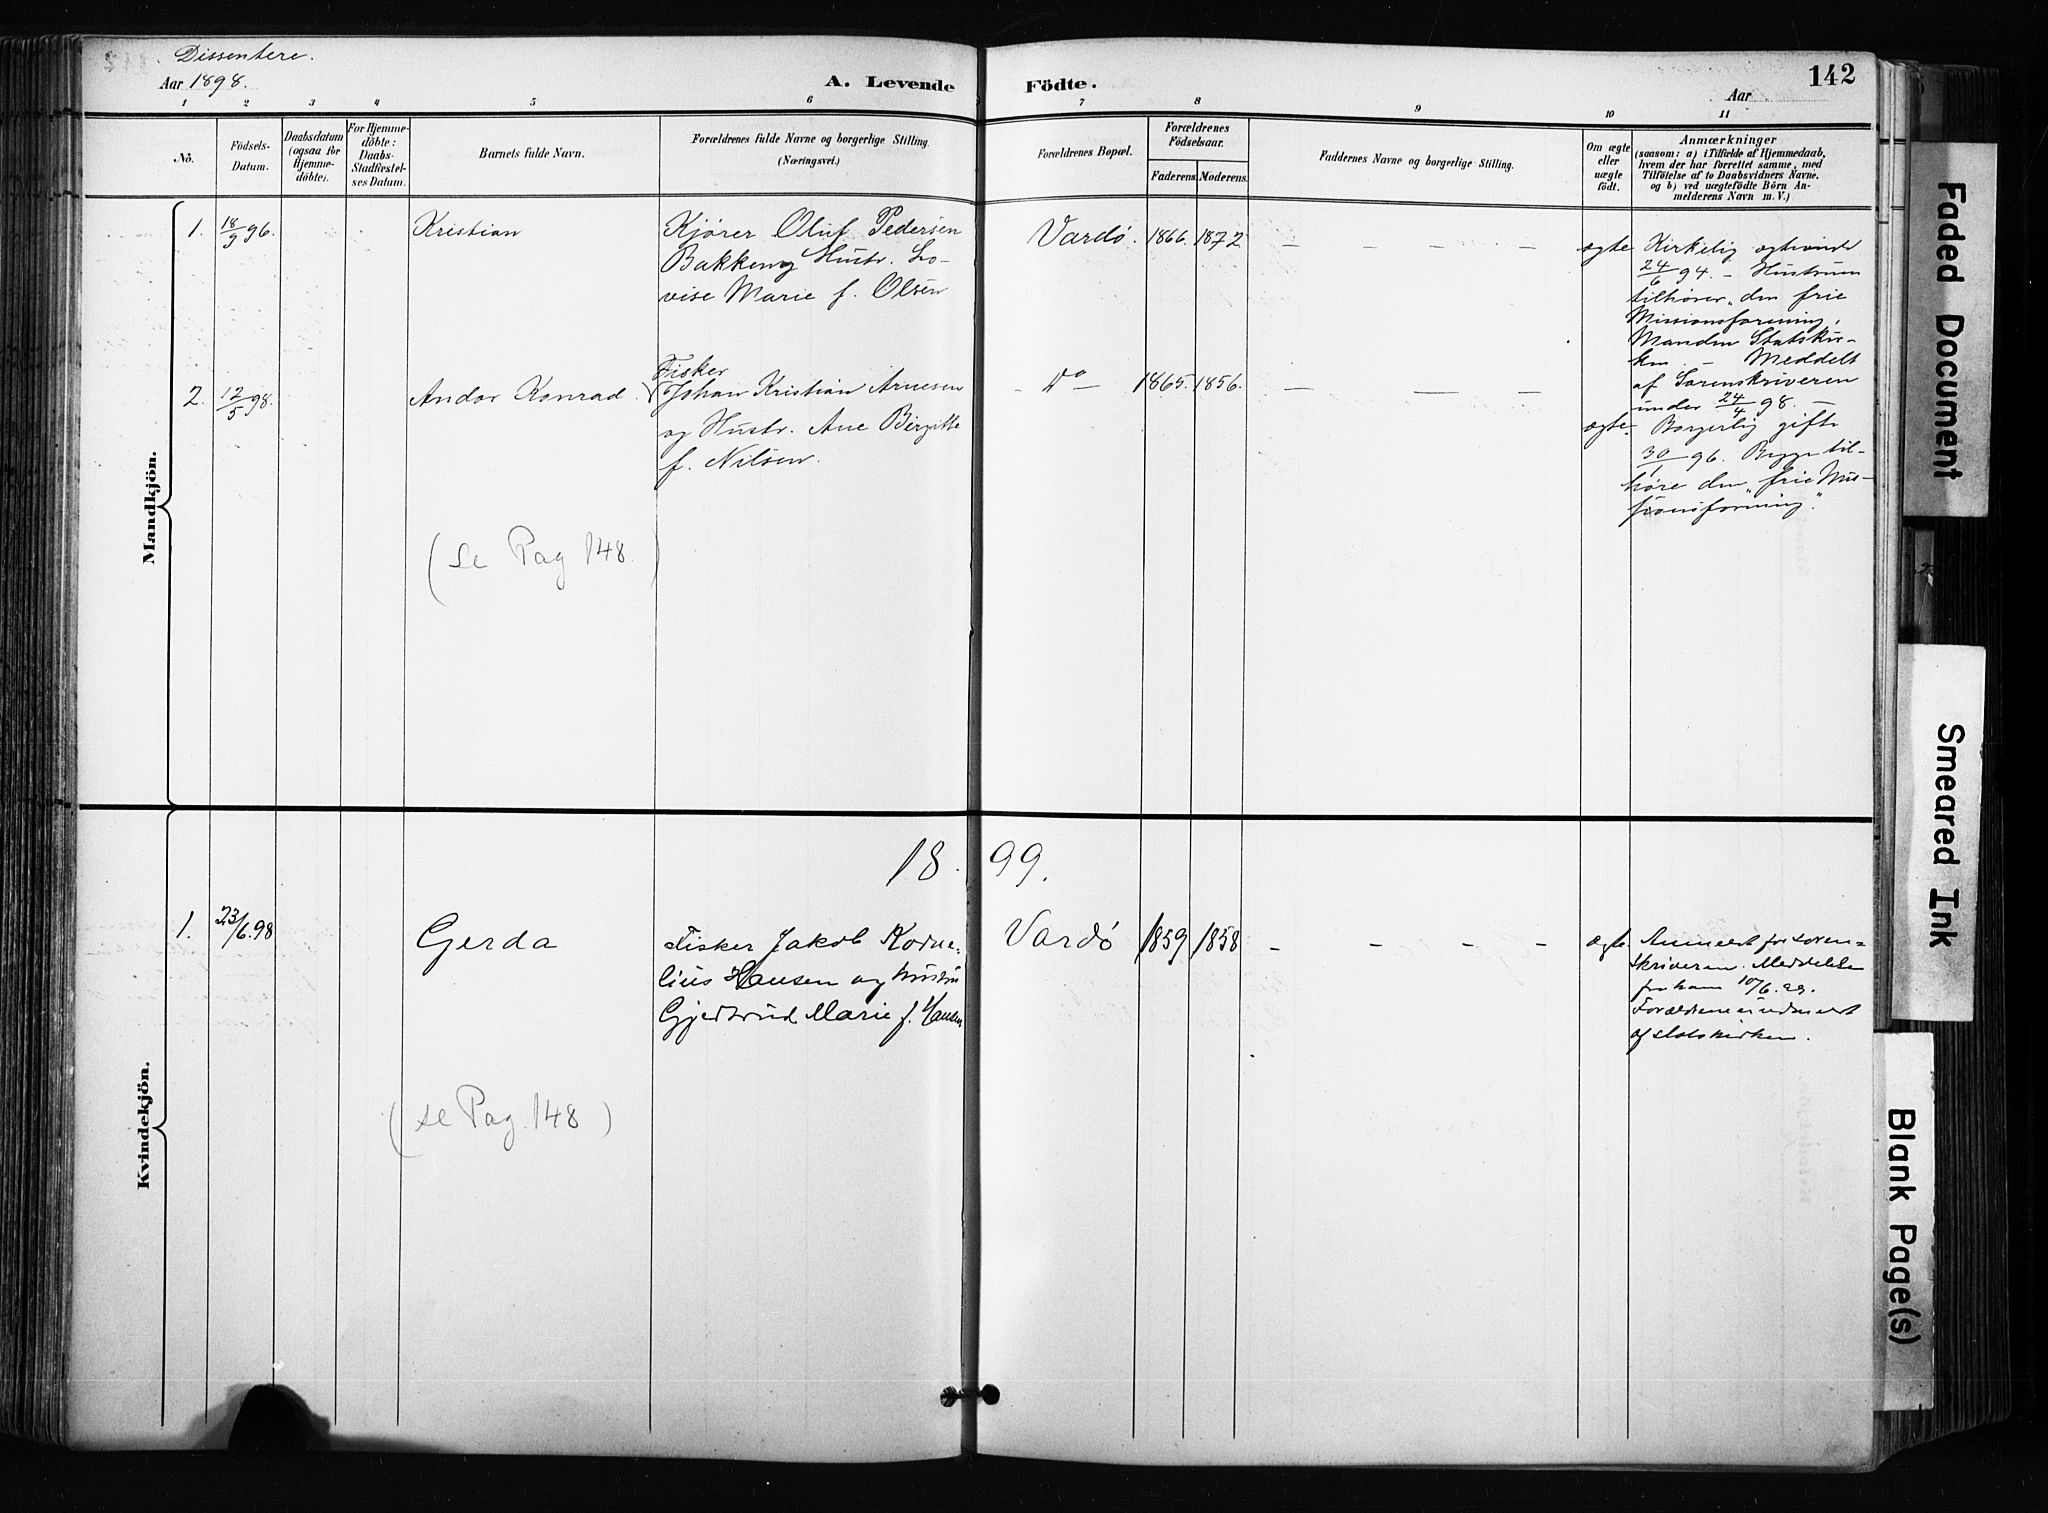 Dissentere.
Aar 1898.
A. Levende
Födte.
142
Aar
1 2 3 4 5 6 7 8 9 10 11
No.
Födsels-
Datum.
Daabsdatum
(ogsaa for
Hjemme-
döbte).
For Hjemme-
döbte:
Daabs-
Stadfestel-
ses Datum.
Barnets fulde Navn.
Forældrenes fulde Navne og borgerlige Stilling.
(Næringsvei.)
Forældrenes Bopæl.
Forældrenes
Födselsaar.
Faderens.
Moderens.
Faddernes Navne og borgerlige Stilling.
Om ægte
eller
uægte
födt.
Anmærkninger
(saasom: a) i Tilfælde af Hjemmedaab,
hvem der har forrettet samme, med
Tilföielse af to Daabsvidners Navne.
og b) ved uægtefödte Börn An-
melderens Navn m. V.)
Mandkjön.
1. 18/9 96.
Kristian
Kjører Oluf Pedersen
Bakkeng Hustr. Lo-
vise Marie f. Olsen
Vardø. 1866. 1872 - - - - -
ægte
Kirkelig
24/6 94. - Hustruen
tilhører "den frie
Missionsforening,
Manden Statskir-
ken - Meddelt
af Sorenskriveren
under 24/4 98. -
2. 12/5 98.
Andor Konrad.
Fisker
Johan Kristian Arnesen
og Hustr. Ane Birgitte
f. Nilsen.
- Do - 1865. 1856. - - -
ægte.
Borgerlig gifte
30/1 96. Begge til-
høre den "frie Mis-
sionsforening".
(se Pag 148.)
Kvindekjön.
18 99.
1. 23/6.98
Gerda
Fisker Jakob Korne-
lius Hansen og hustru
Gjertrud Marie f. Hansen
Vardø 1859 1858 - - - -
ægte.
Anmeldt for soren-
skriveren. Meddelelse
fra ham 10/6.99.
Forældrene udmeldt
af statskirken.
(se Pag. 148)
Faded Document
Smeared Ink
Blank Page(s)